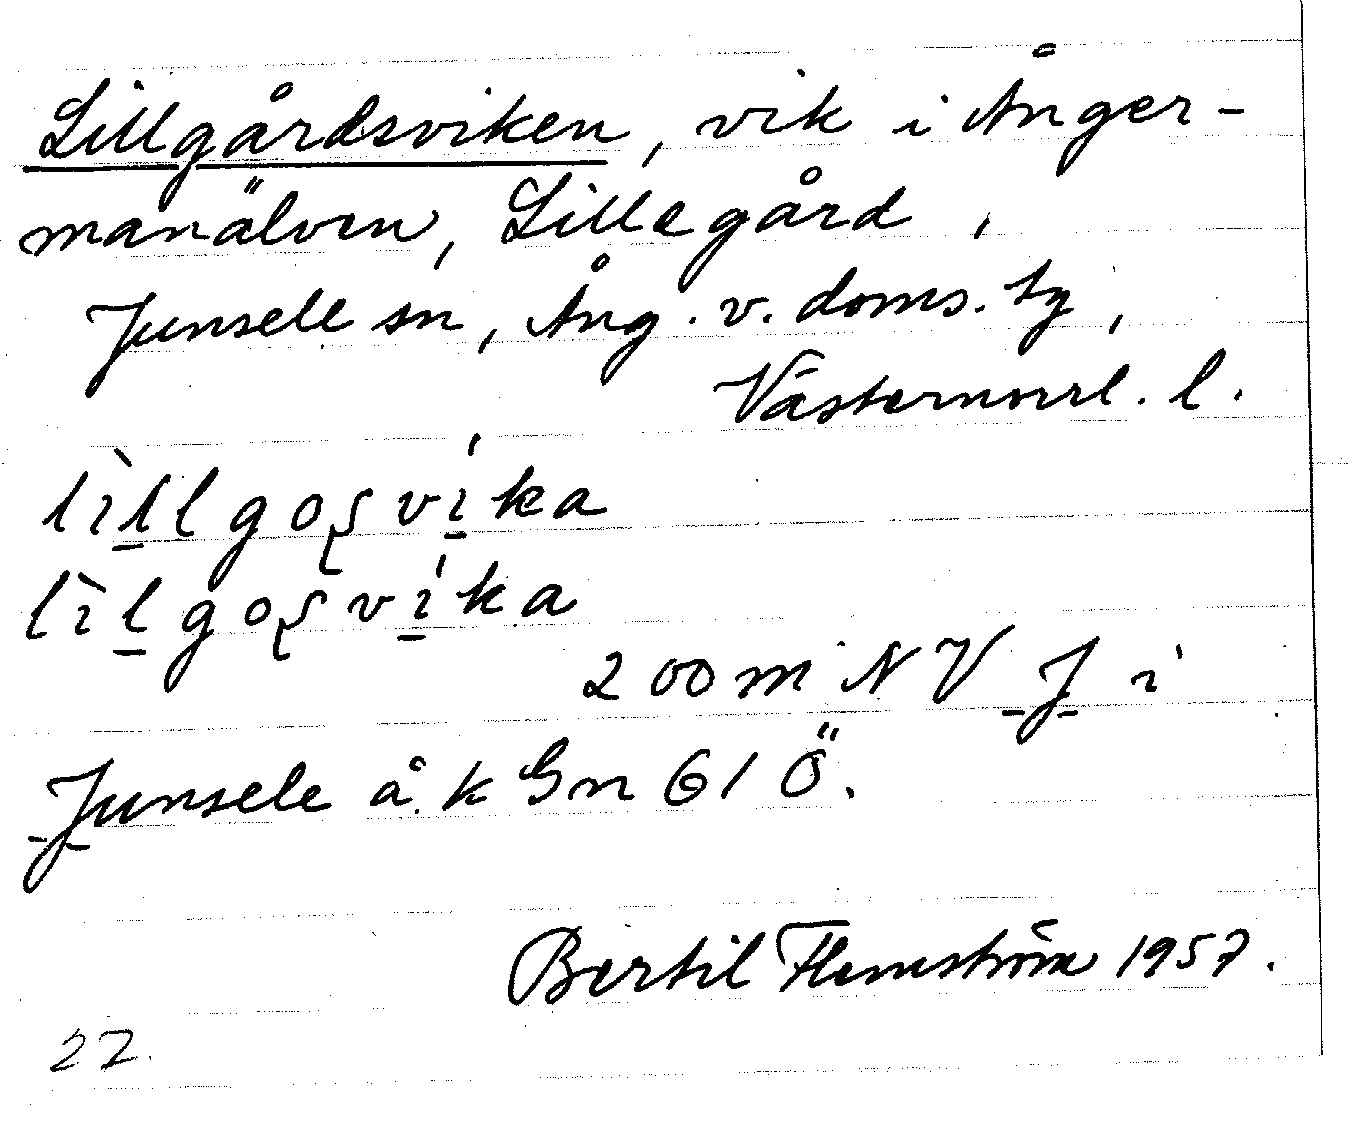 Lillgårdsviken, vik i Ånger-
manälven, Lillegård,
Junsele sn, Ång. v. doms. tg,
Västernorrl. l.
lìllgoʂvíka
lìlgoʂvíka
200 m NV J i
Junsele å. k Gn 61 Ö.
Bertil Flemström 1957.
22.